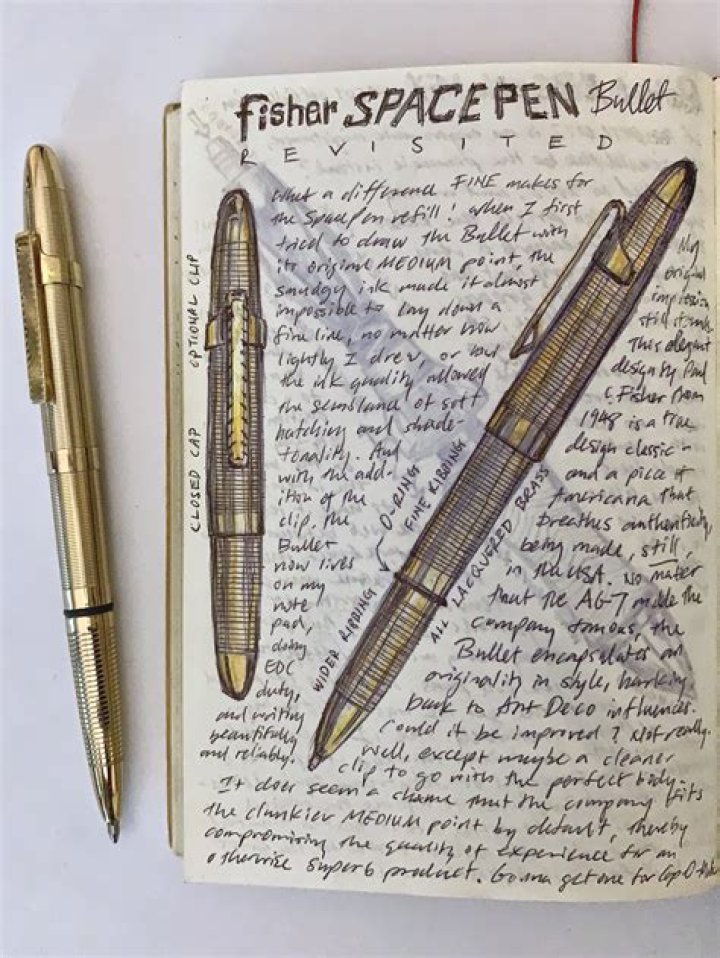 fisher SPACE PEN Bullet
REVISITED
What a difference FINE makes for
the Space Pen refill! When I first
tried to draw the Bullet with
its original MEDIUM point, the
smudgy ink made it almost
impossible to lay down a
fine line, no matter how
lightly I drew, or how
the ink quality allowed
the semblance of soft
hatching and shade-
tonality. And
with the add-
ition of the
clip, the
Bullet
now lives
on my
note
pad,
doing
EDC
duty,
and writing
beautifully
and reliably.
OPTIONAL CLIP
CLOSED CAP
O-RING
FINE RIBBING
WIDER RIBBING
ALL LACQUERED BRASS
My
original
impression
still stands.
This elegant
design by Paul
C. Fisher from
1948 is a true
design classic –
and a piece of
Americana that
breathes authenticity,
being made, still,
in the USA. No matter
that the AG-7 made the
company famous, the
Bullet encapsulates an
originality in style, harking
back to Art Deco influences.
Could it be improved? Not really.
Well, except maybe a cleaner
clip to go with the perfect body.
It does seem a shame that the company fits
the clunkier MEDIUM point by default, thereby
compromising the quality of experience for an
otherwise superb product. Gonna get one for